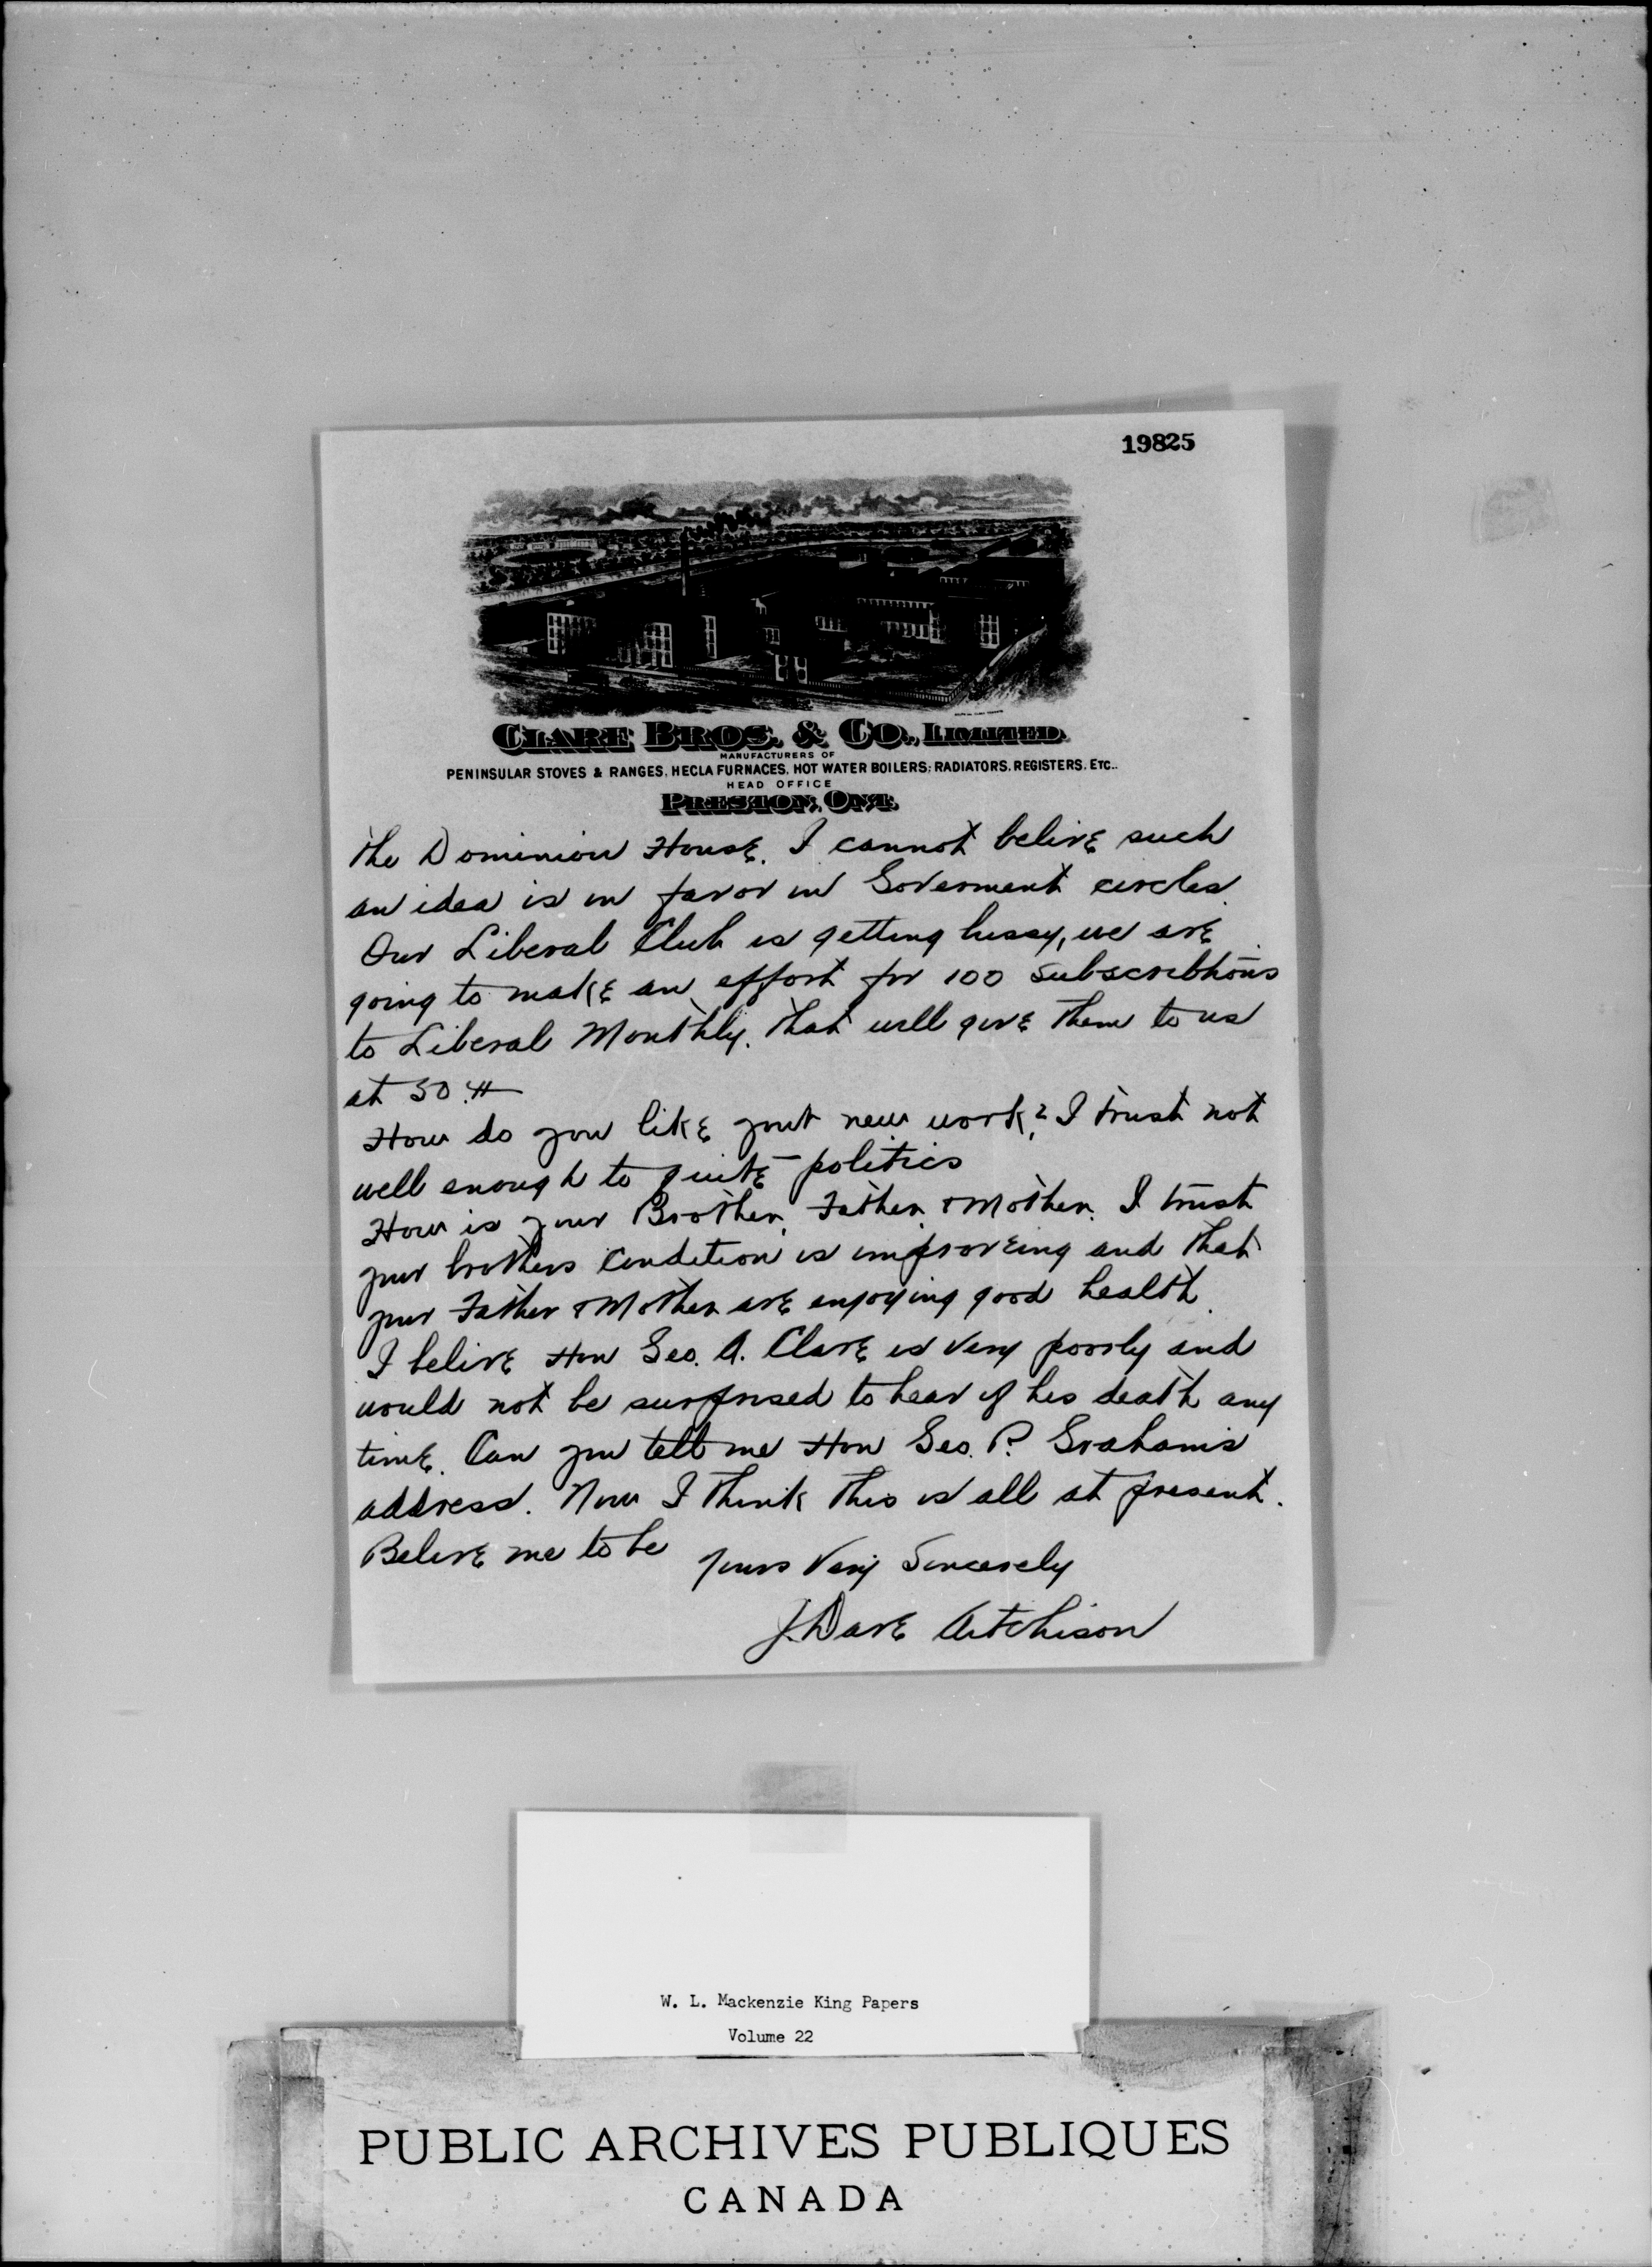 19825
CLARE BROS. & CO., LIMITED.
MANUFACTURERS OF
PENINSULAR STOVES & RANGES, HECLA FURNACES, HOT WATER BOILERS; RADIATORS, REGISTERS, ETC..
HEAD OFFICE
PRESTON, ONT.
the Dominion House. I cannot belive such
an idea is in favor in Goverment circles.
Our Liberal Club is getting bussy, we are
going to make an effort for 100 subscribtions
to Liberal Monthly. that will give them to us
at 50
How do you like your new work? I trust not
well enough to quite politics
How is your Brother, Father & Mother. I trust
your brothers condition is improveing and that
your Father & Mother are enjoying good health.
I belive Hon Geo. A. Clare is very poorly and
would not be surprised to hear of his death any
time. Can you tell me Hon Geo. P. Graham's
address. Now I think this is all at present.
Belive me to be
Yours Very Sincerely
J. Dave Aitchison
W. L. Mackenzie King Papers
Volume 22
PUBLIC ARCHIVES PUBLIQUES
CANADA